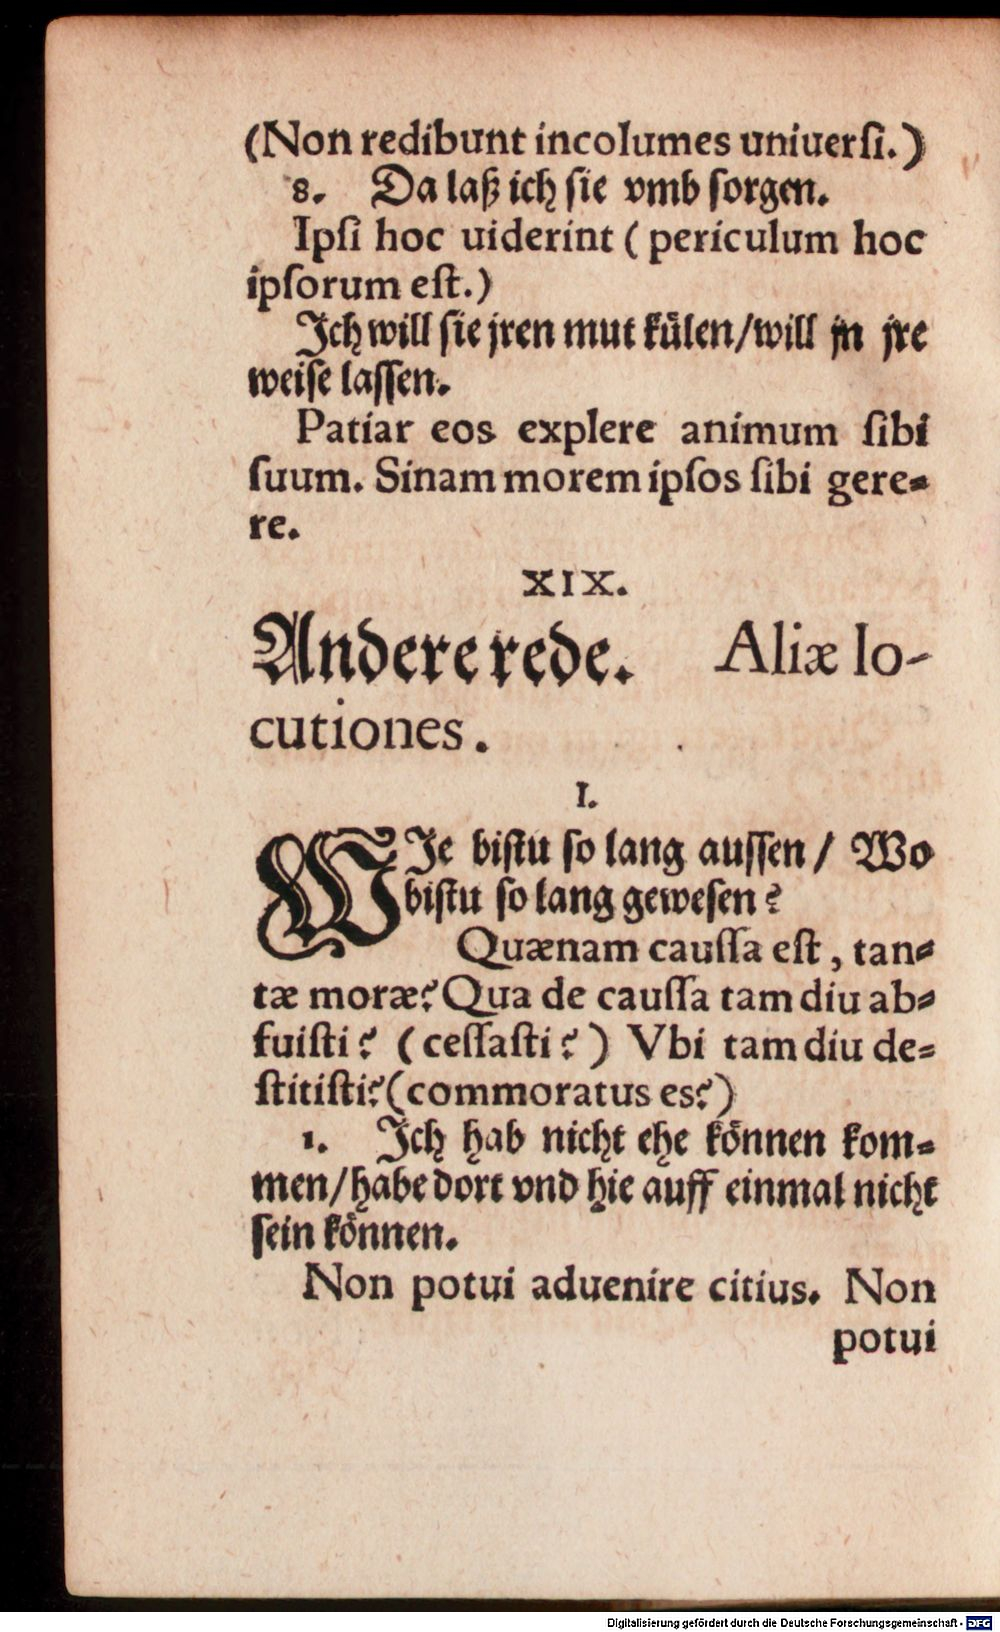 (Non redibunt incolumes uniuerſi.)
8. Da laß ich ſie vmb ſorgen.
Ipſi hoc uiderint (periculum hoc
ipſorum eſt.)
Ich will ſie jren mut kuͤlen/will jn jre
weiſe laſſen.
Patiar eos explere animum ſibi
ſuum. Sinam morem ipſos ſibi gere⸗
re.
XIX.
Andere rede. Aliæ lo-
cutiones.
I.
WIe biſtu ſo lang auſſen/ Wo
biſtu ſo lang geweſen?
Quænam cauſſa eſt, tan⸗
tæ moræ? Qua de cauſſa tam diu ab⸗
fuiſti? (ceſſaſti?) Vbi tam diu de⸗
ſtitiſti? (commoratus es?)
1. Ich hab nicht ehe koͤnnen kom⸗
men/habe dort vnd hie auff einmal nicht
ſein koͤnnen.
Non potui aduenire citius. Non
potui
Digitalisierung gefördert durch die Deutsche Forschungsgemeinschaft - DFG